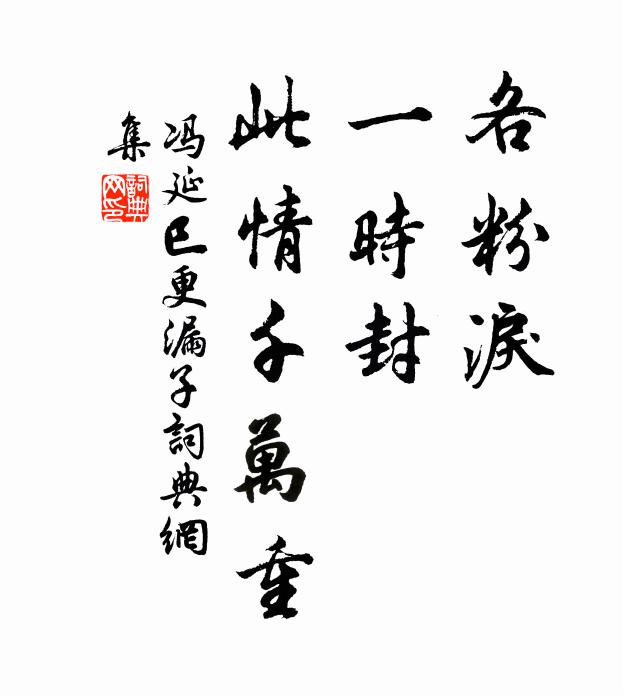 各粉淚
一時封
此情千萬重
冯延巳更漏子詞典網
集
詞典
网印